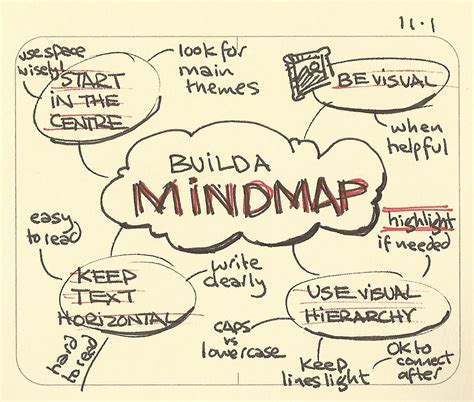 11.1
use space
wisely!
START
IN THE
CENTRE
look for
main
themes
BE VISUAL
when
helpful
BUILD A
MINDMAP
easy
to read
KEEP
TEXT
HORIZONTAL
hard
to read
write
clearly
highlight
if needed
USE VISUAL
HIERARCHY
CAPS
vs
lowercase
Keep
lines light
OK to
connect
after